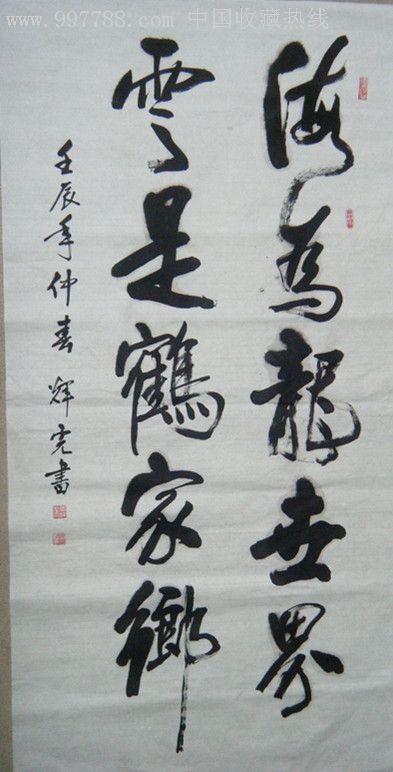 www.997788.com 中国收藏热线
海為龍世界
雲是鶴家鄉
壬辰年仲春 輝完書